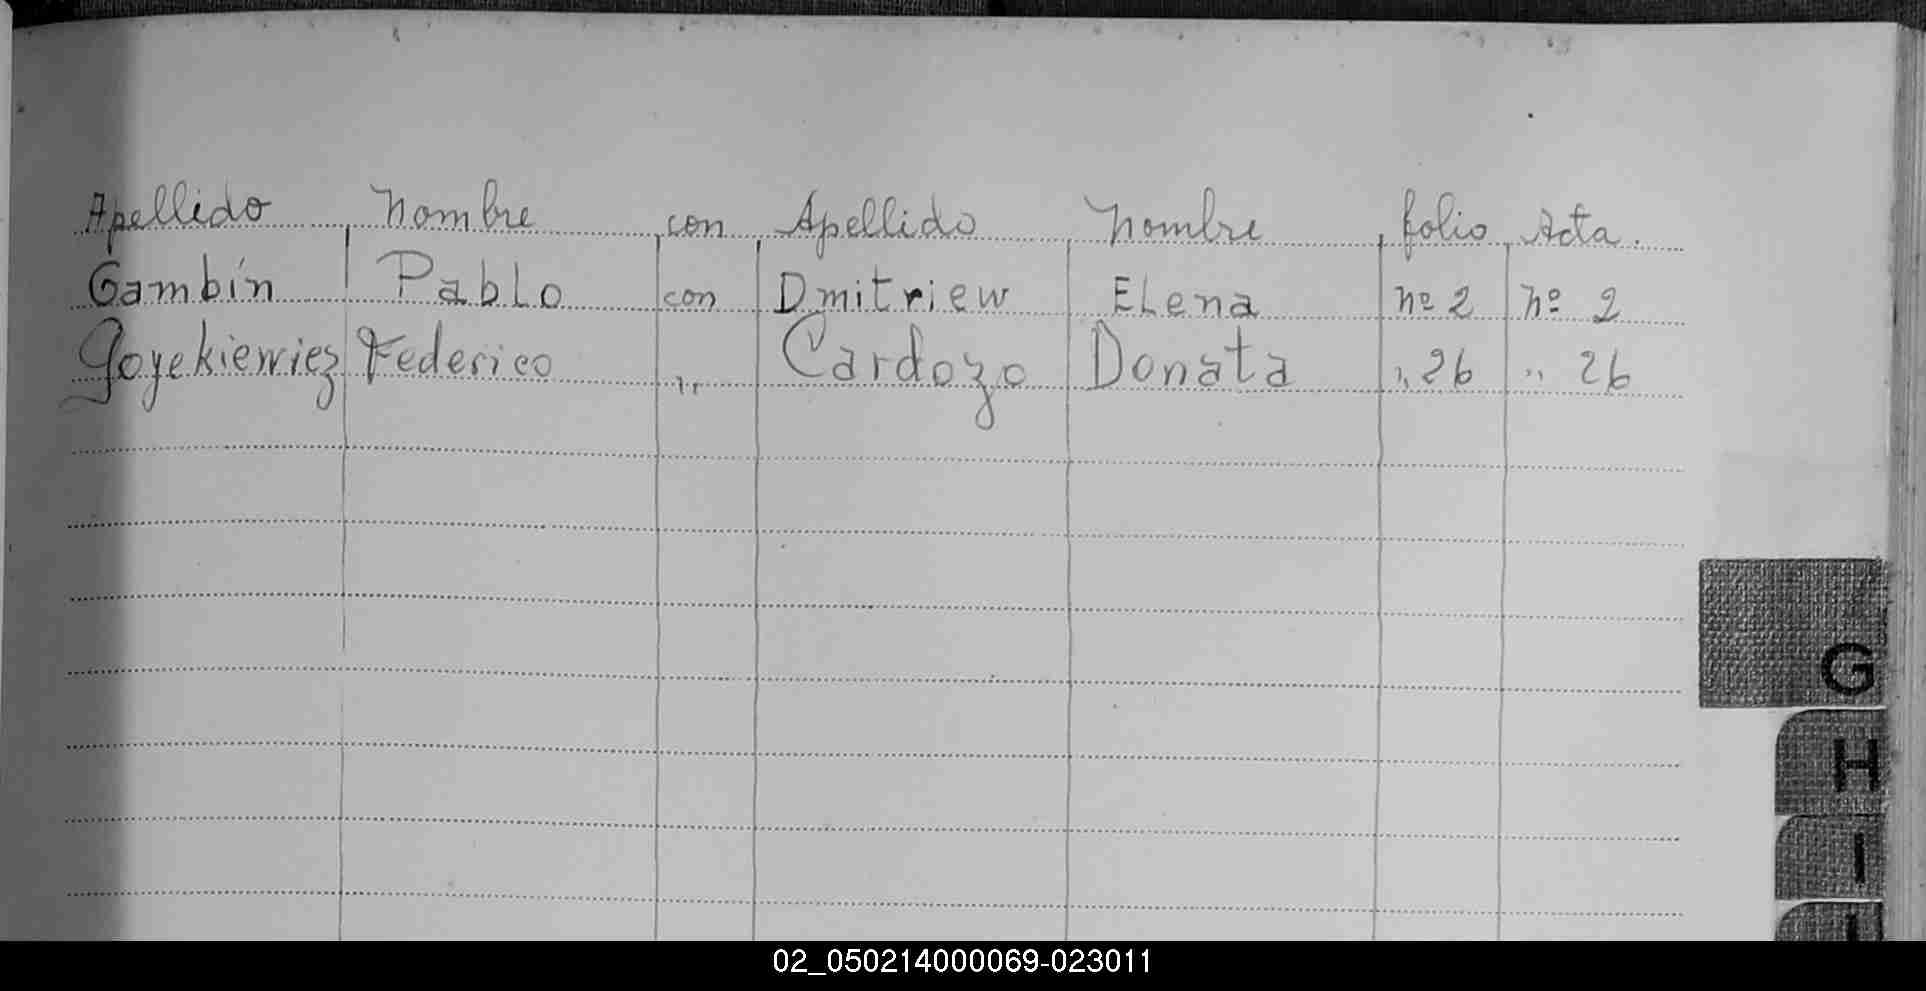 Apellido Nombre con Apellido Nombre folio Acta.
Gambín Pablo con Dmitriew Elena nº 2 nº 2
Goyekiewiez Federico ,, Cardozo Donata ,, 26 ,, 26
G
H
I
02_050214000069-023011